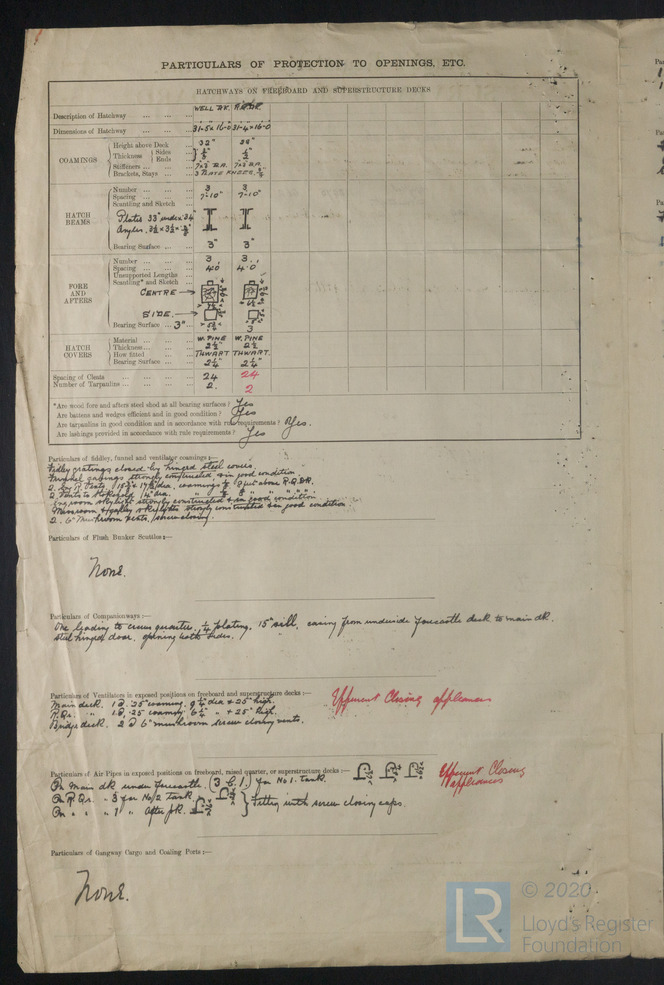 PARTICULARS OF PROTECTION TO OPENINGS, ETC.
HATCHWAYS ON FREEBOARD AND SUPERSTRUCTURE DECKS
Description of Hatchway ... ... ... WELL DK.
Dimensions of Hatchway ... 31-5 x 16-0 31-4 x 16-0
COAMINGS
Height above Deck ... 32"
Thickness Sides
Ends
Stiffeners ... ...
Brackets, Stays ... ... 3 PLATE KNEES
HATCH BEAMS
Number ... ... ... 3 3
Spacing ... ... ... 7-10" 7-10"
Scantling and Sketch ...
Plates 33" under 34"
Angles
Bearing Surface ... ... 3" 3"
FORE AND AFTERS
Number ... ... ... 3 3
Spacing ... ... ... 4.0 4.0
Unsupported Lengths ...
Scantling* and Sketch ...
CENTRE
SIDE
Bearing Surface ... 3" 3
HATCH COVERS
Material ... ... ... W. PINE W. PINE
Thickness ... ... ... 2½ 2½
How fitted ... ... THWART THWART.
Bearing Surface ... ... 2¼" 2¼"
Spacing of Cleats ... ... ... 24 24
Number of Tarpaulins ... ... ... 2. 2
*Are wood fore and afters steel shod at all bearing surfaces? Yes
Are battens and wedges efficient and in good condition? Yes
Are tarpaulins in good condition and in accordance with rule requirements? Yes.
Are lashings provided in accordance with rule requirements? Yes
Particulars of fiddley, funnel and ventilator coamings:—
Fidley gratings closed by hinged steel covers
Funnel casings strongly constructed & in good condition
Engroom skylight strongly constructed & in good condition
Messroom & galley skylights strongly constructed & in good condition
2. 6" Mushroom vents, screw closing.
Particulars of Flush Bunker Scuttles:—
None.
Particulars of Companionways:—
One leading to crews quarters, ¼ plating, 15" sill, casing from underside forecastle deck to main dk.
steel hinged door, opening both sides.
Particulars of Ventilators in exposed positions on freeboard and superstructure decks:—
Main deck. 1 @ .25" coaming, 9¼" dia & 25" high.
R. Qr. " 1 @ .25 coaming 6¼" " + 25" high.
Bridge deck. 2 @ 6" mushroom screw closing vents.
Efficient Closing appliances
Particulars of Air Pipes in exposed positions on freeboard, raised quarter, or superstructure decks:—
On main dk under forecastle. for No 1. tank.
On R. Qr. " 3 for No. 2 tank.
On " " " 1 " After pk.
Fitting with screw closing caps.
Efficient Closing
appliances
Particulars of Gangway Cargo and Coaling Ports:—
None.
LR
© 2020
Lloyd's Register
Foundation